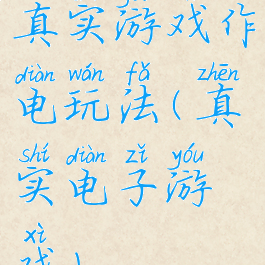 真实游戏作
diàn wán fǎ zhēn
电玩法(真
shí diàn zǐ yóu
实电子游
xì
戏)